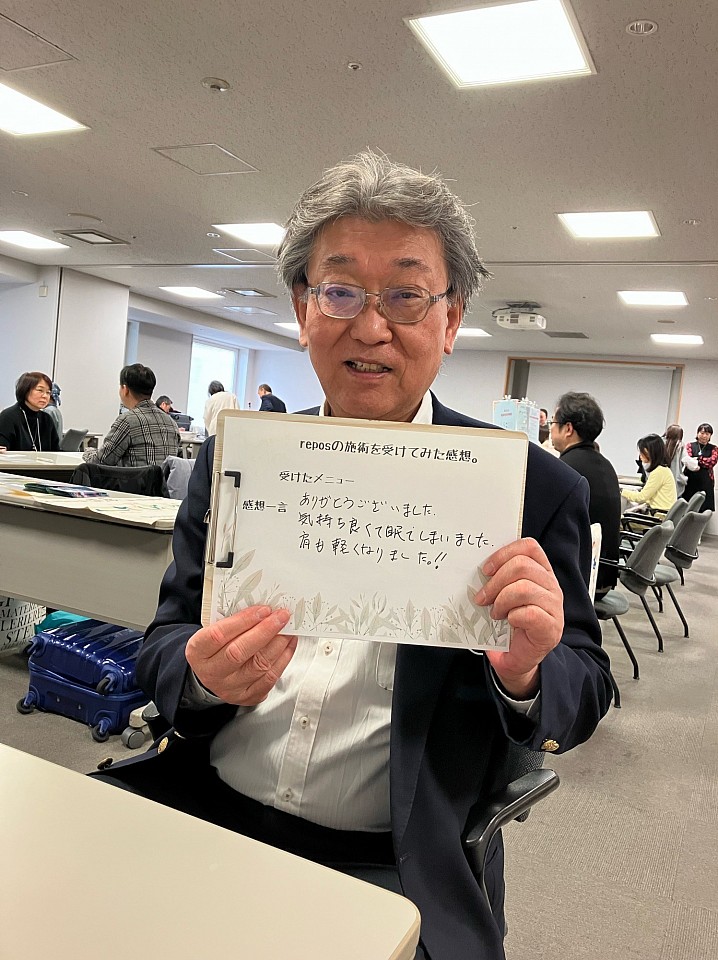 reposの施術を受けてみた感想。
受けたメニュー
感想一言
ありがとうございました.
気持ち良くて眠てしまいました.
肩も軽くなりました。!!